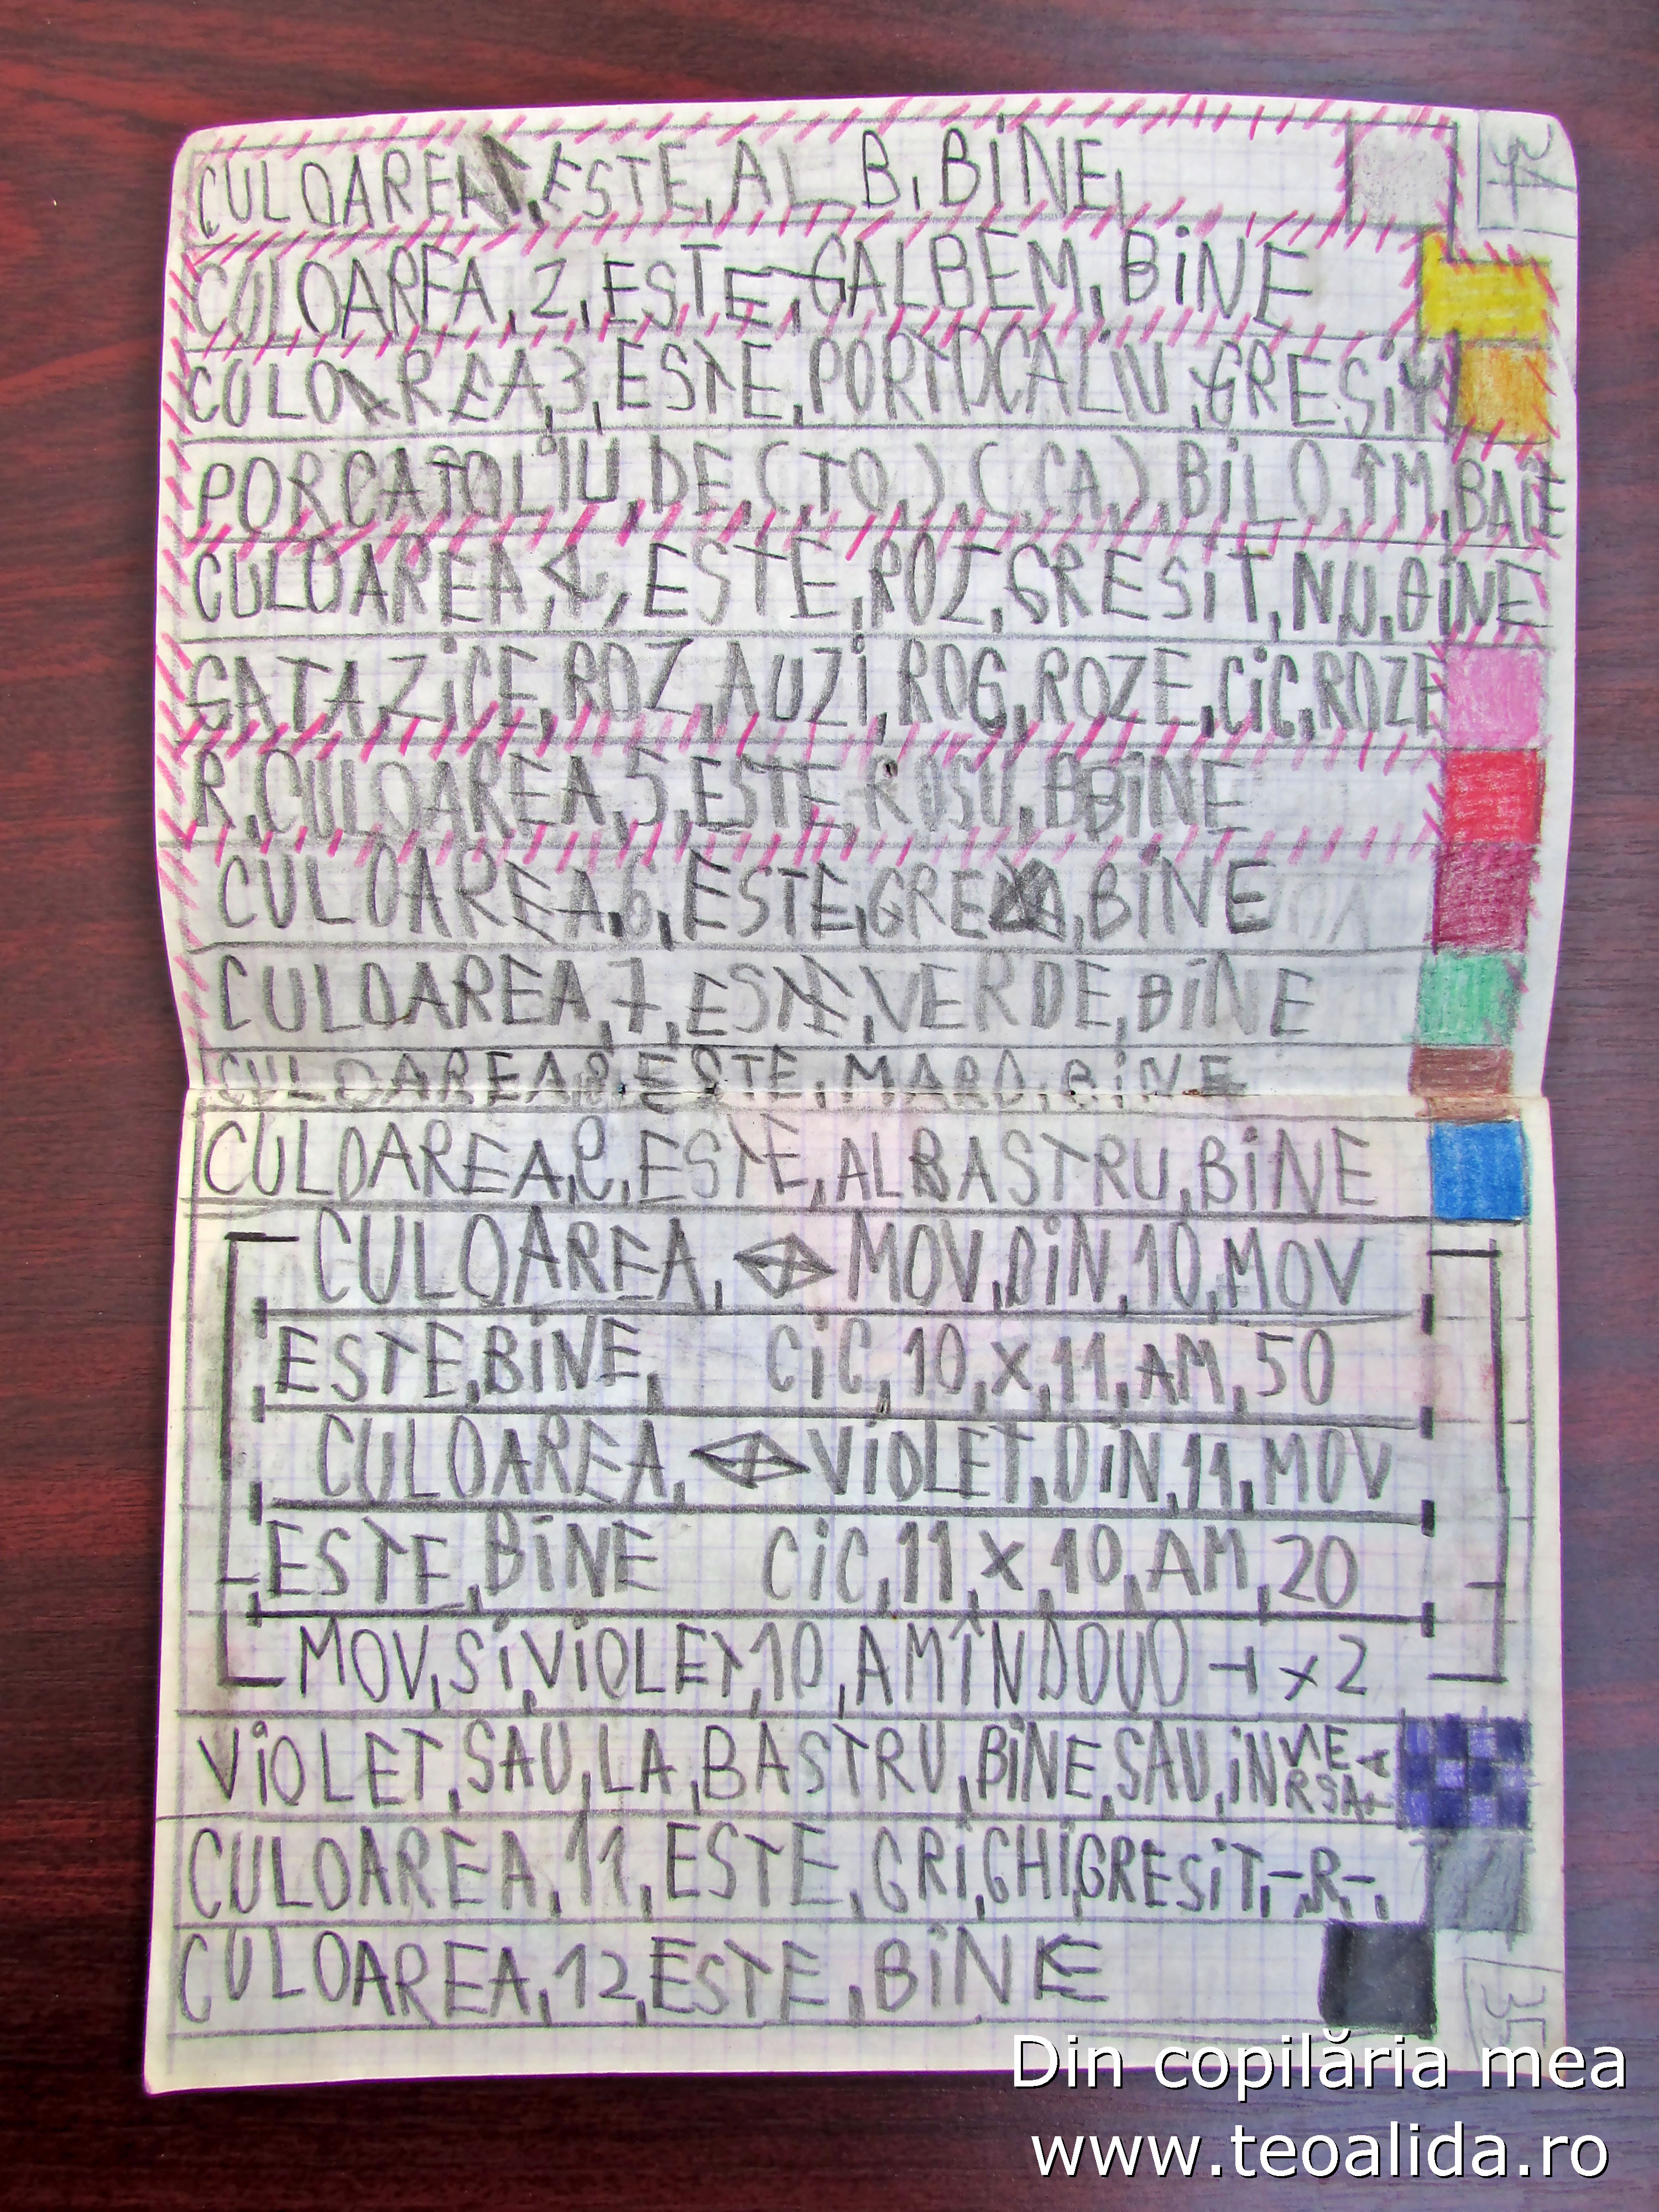 34
CULOAREA 1, ESTE, AL B, BiNE,
CULOAREA, 2, ESTE, GALBEM, BiNE
CULOAREA, 3, ESTE, PORTOCALiU, GRESiT
PORCATOLIU, DE, (TO,) (,CA,) BiLO, ÎM, BAiE
CULOAREA, 4, ESTE, ROZ, GRESiT, NU, BiNE
GATA ZiCE, ROZ, AUZi, ROG, ROZE, CiC, ROZE
R, CULOAREA, 5, ESTE, ROSU, BBiNE
CULOAREA, 6, ESTE, BiNE
CULOAREA, 7, ESTE, VERDE, BiNE
CULOAREA, 8, ESTE, MARO, BiNE
CULOAREA, ESTE, ALBASTRU, BiNE
CULOAREA, MOV, DiN, 10, MOV
ESTE, BiNE, CiC, 10, X, 11, AM, 50
CULOAREA, ViOLET, DiN, 11, MOV
ESTE, BiNE CiC, 11, X, 10, AM, 20
MOV, Si, ViOLET, 10, AMÎNDOUO x 2
ViOLET, SAU, LA, BASTRU, BiNE, SAU, iNVERSAT
CULOAREA, 11, ESTE, GRi, GHi, GRESiT, -, R -,
CULOAREA, 12, ESTE, BiNE
35
Din copilăria mea
www.teoalida.ro